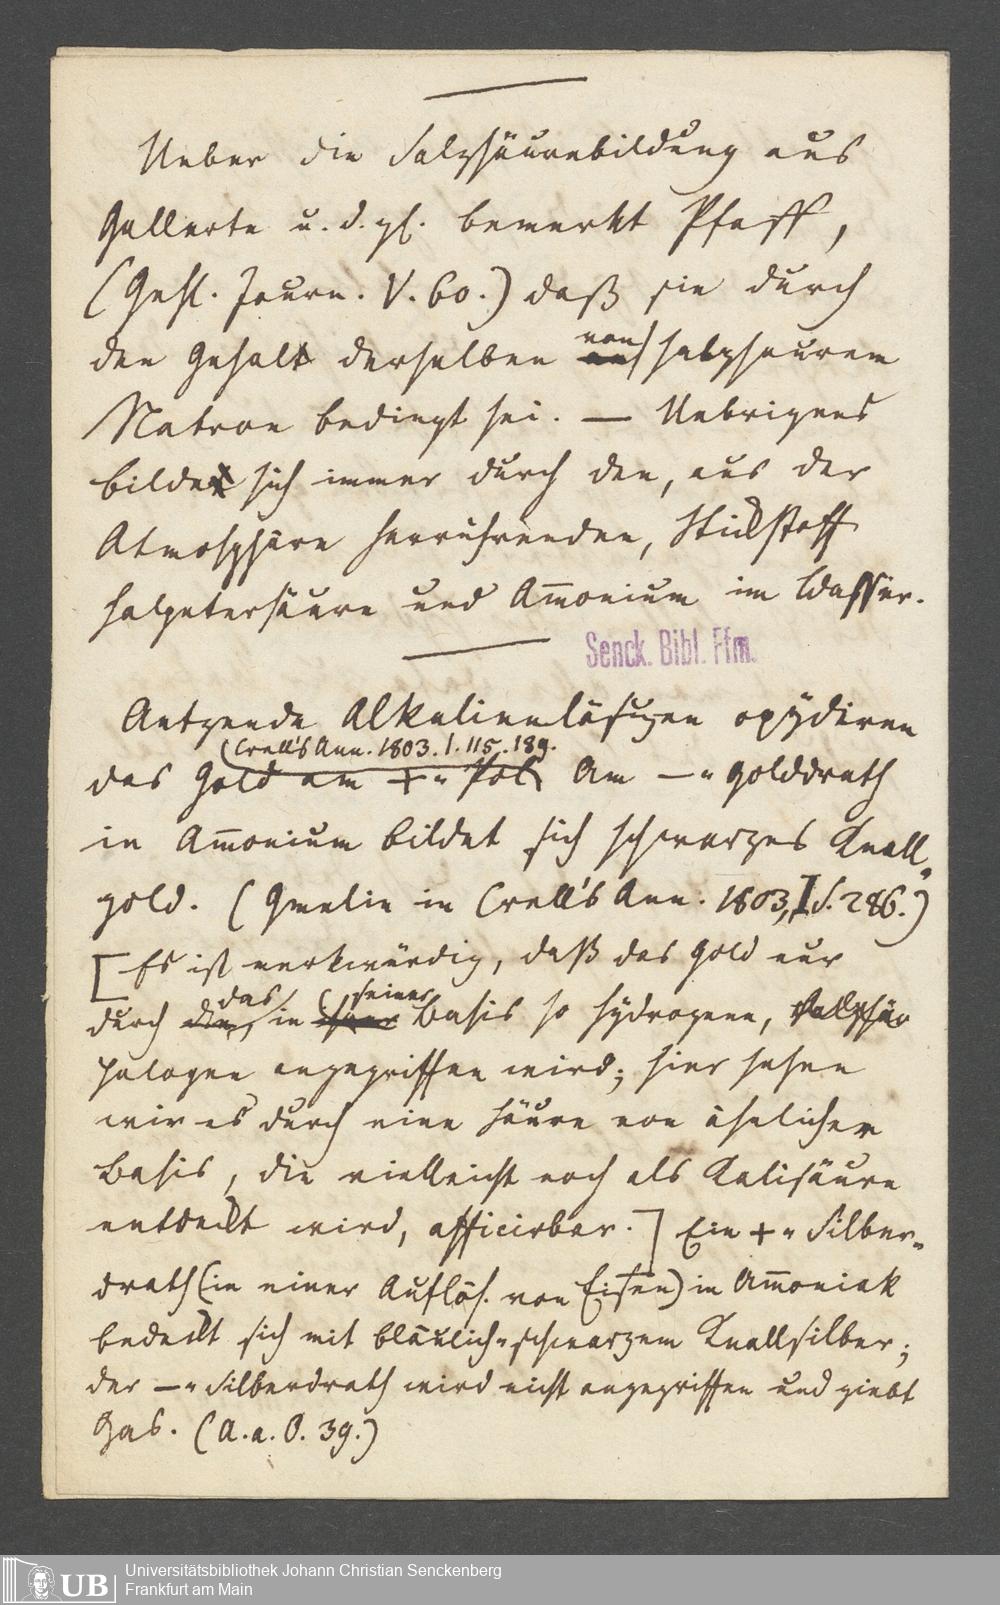 Ueber die Salzsäurebildung aus
Gallerte u. d. gl. bemerkt Pfaff,
(Gehl. Journ. V. 60.) daß sie durch
den Gehalt derselben von salzsaurem
Natron bedingt sei. — Uebrigens
bilde sich immer durch den, aus der
Atmosphäre herrührenden, Stickstoff
Salpetersäure und Am̅onium im Wasser.
Senck. Bibl. Ffm.
Aetzende Alkalienlösungen oxydiren
(Crell's Ann. 1803. I. 115. 189.
das Gold am +" Pol. Am —" Golddrath
in Am̅onium bildet sich schwarzes Knall"
gold. (Gmelin in Crell's Ann. 1803, I S. 286.)
[Es ist merkwürdig, daß das Gold nur
durch das, in seiner Basis so hydrogene,
Halogen angegriffen wird; hier sehen
wir es durch eine Säure von ähnlicher
Basis, die vielleicht noch als Kalisäure
entdeckt wird, afficirbar.] Ein +" Silber"
drath (in einer Auflös. von Eisen) in Am̅oniak
bedeckt sich mit bläulich"schwarzem Knallsilber;
der —" Silberdrath wird nicht angegriffen und giebt
Gas. (A. a. O. 39.)
UB
Universitätsbibliothek Johann Christian Senckenberg
Frankfurt am Main